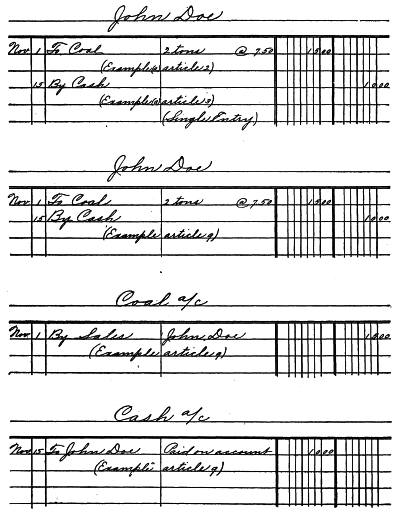 John Doe
Nov 1 To Coal 2 tons @ 7.50 15.00
(Example (a) article 2)
15 By Cash 10.00
(Example (a) article 3)
(Single Entry)
John Doe
Nov 1 To Coal 2 tons @ 7.50 15.00
15 By Cash 10.00
(Example article 9)
Coal a/c
Nov 1 By Sales John Doe 15.00
(Example article 9)
Cash a/c
Nov 15 To John Doe Paid on account 10.00
(Example article 9)